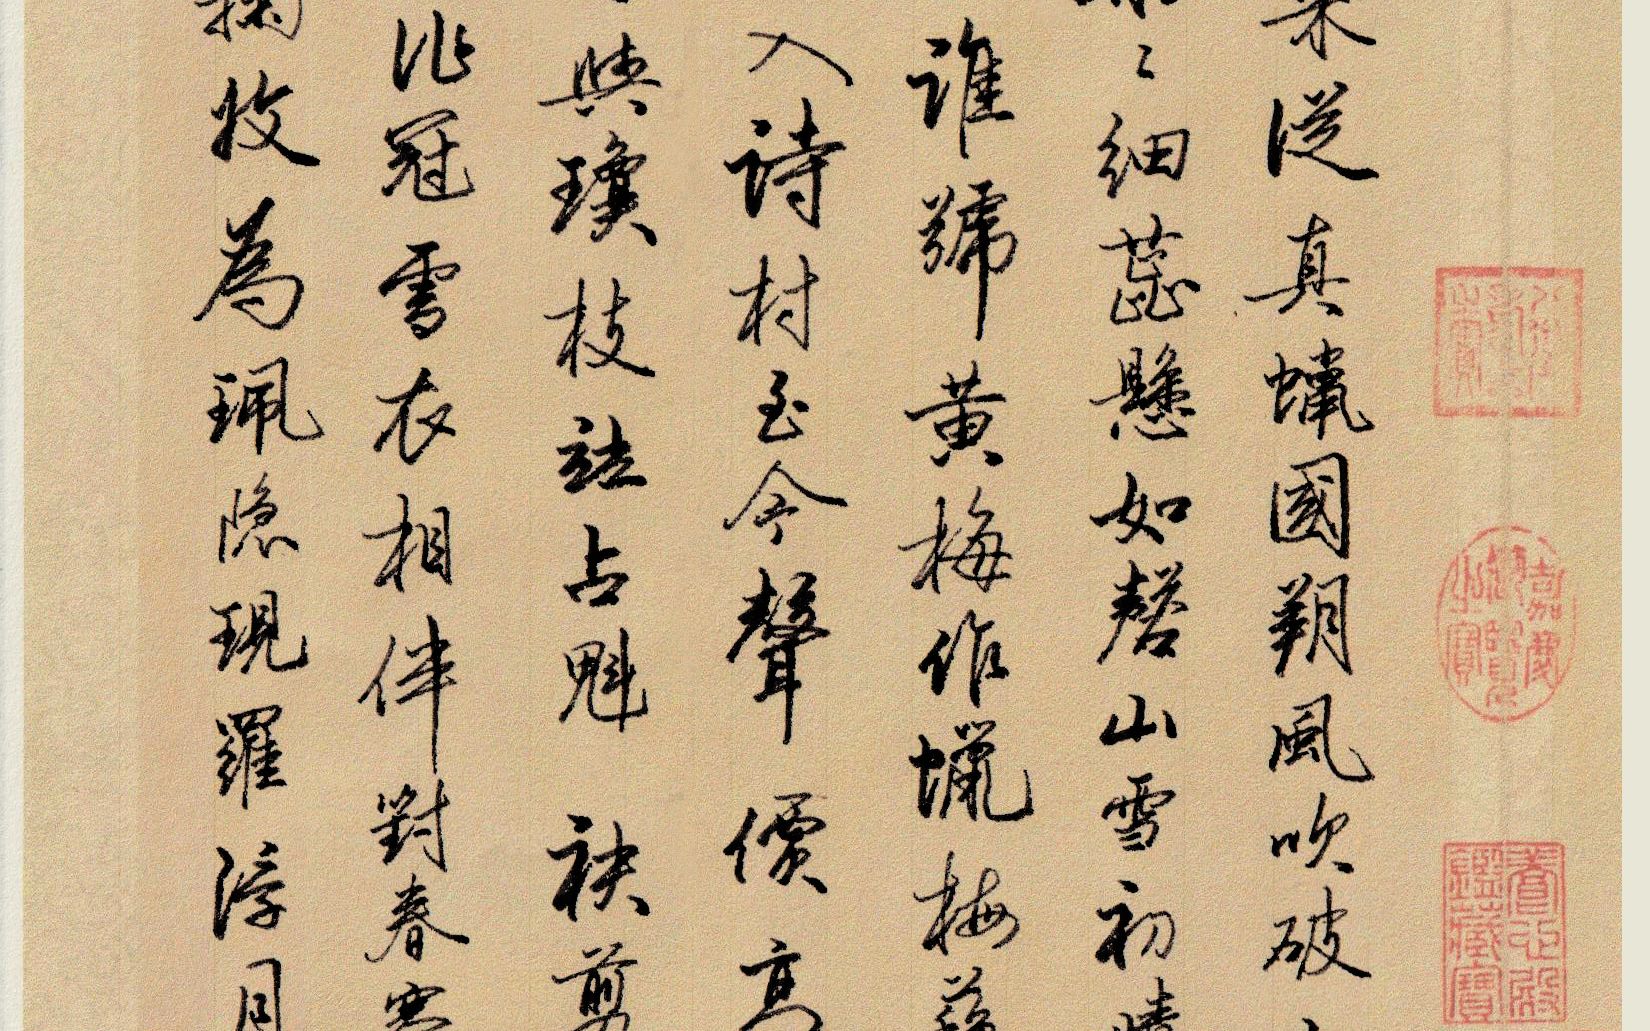 來從真蠟國朔風吹破
細蕊懸如磬山雪初晴
誰號黃梅作蠟梅
入詩村至今聲價高
與瓊枝說占魁袂剪
冠雪衣相伴對春寒
牧為珮隐現羅浮月
嘉慶御覽之寶
養心殿鑑藏寶